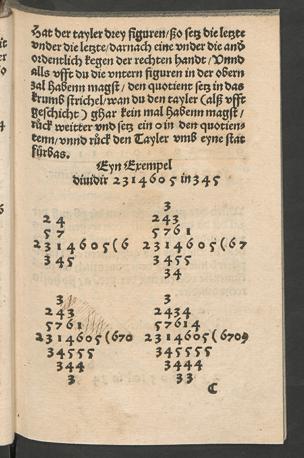 Hat der tayler drey figuren/ßo setz die letzte
vnder die letzte/darnach eine vnder die and
ordentlich kegen der rechten handt/Vnnd
alls vfft du die vntern figuren in der obern
zal habenn magst/den quotient setz in das
krumb strichel/wan du den tayler (alß vfft
geschicht) gHar kein mal habenn magst/
rück weitter vnd setz ein 0 in den quotien-
tenn/vnnd rück den Tayler vmb eyne stat
fürbas.
Eyn Exempel
diuidir 2314605 in 345
3
24 243
57 5761
2314605(6 2314605(67
345 3455
34
3 3
243 2434
5761 57614
2314605(670 2314605(6709
34555 345555
344 3444
3 33
C